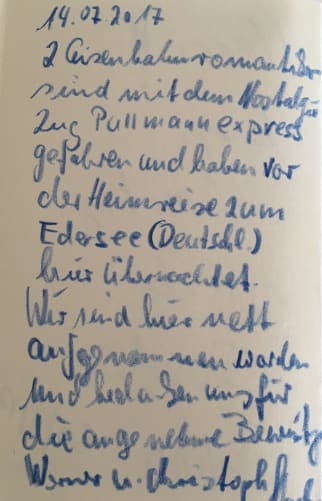 14.07.2017
2 Eisenbahnromantiker
sind mit dem Nostalgie
Zug Pullmannexpress
gefahren und haben vor
der Heimreise zum
Edersee (Deutschl.)
hier übernachtet.
Wir sind hier nett
aufgenommen worden
und bedanken uns für
die angenehme
Werner u. Christoph